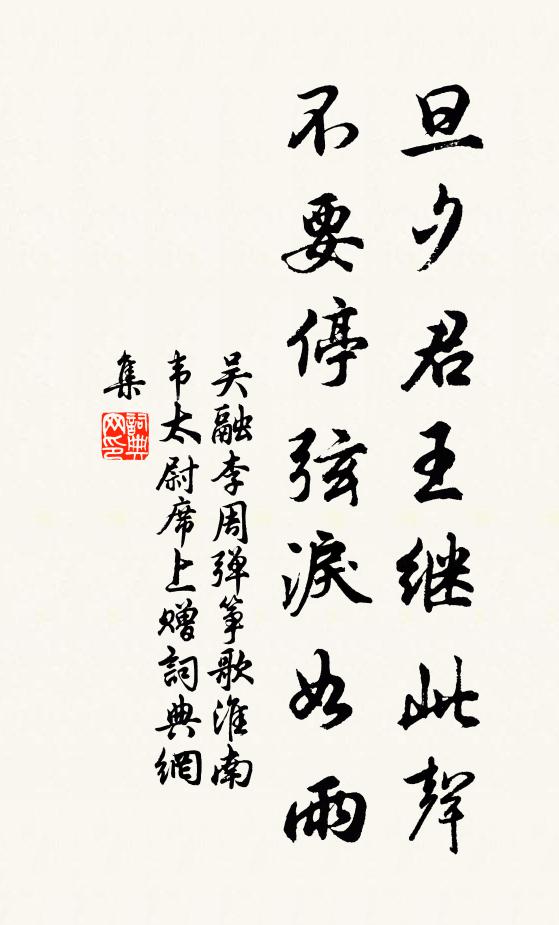 旦夕君王继此聲
不要停弦淚如雨
吴融李周弹筝歌淮南
韦太尉席上赠詞典網
集
詞典網印